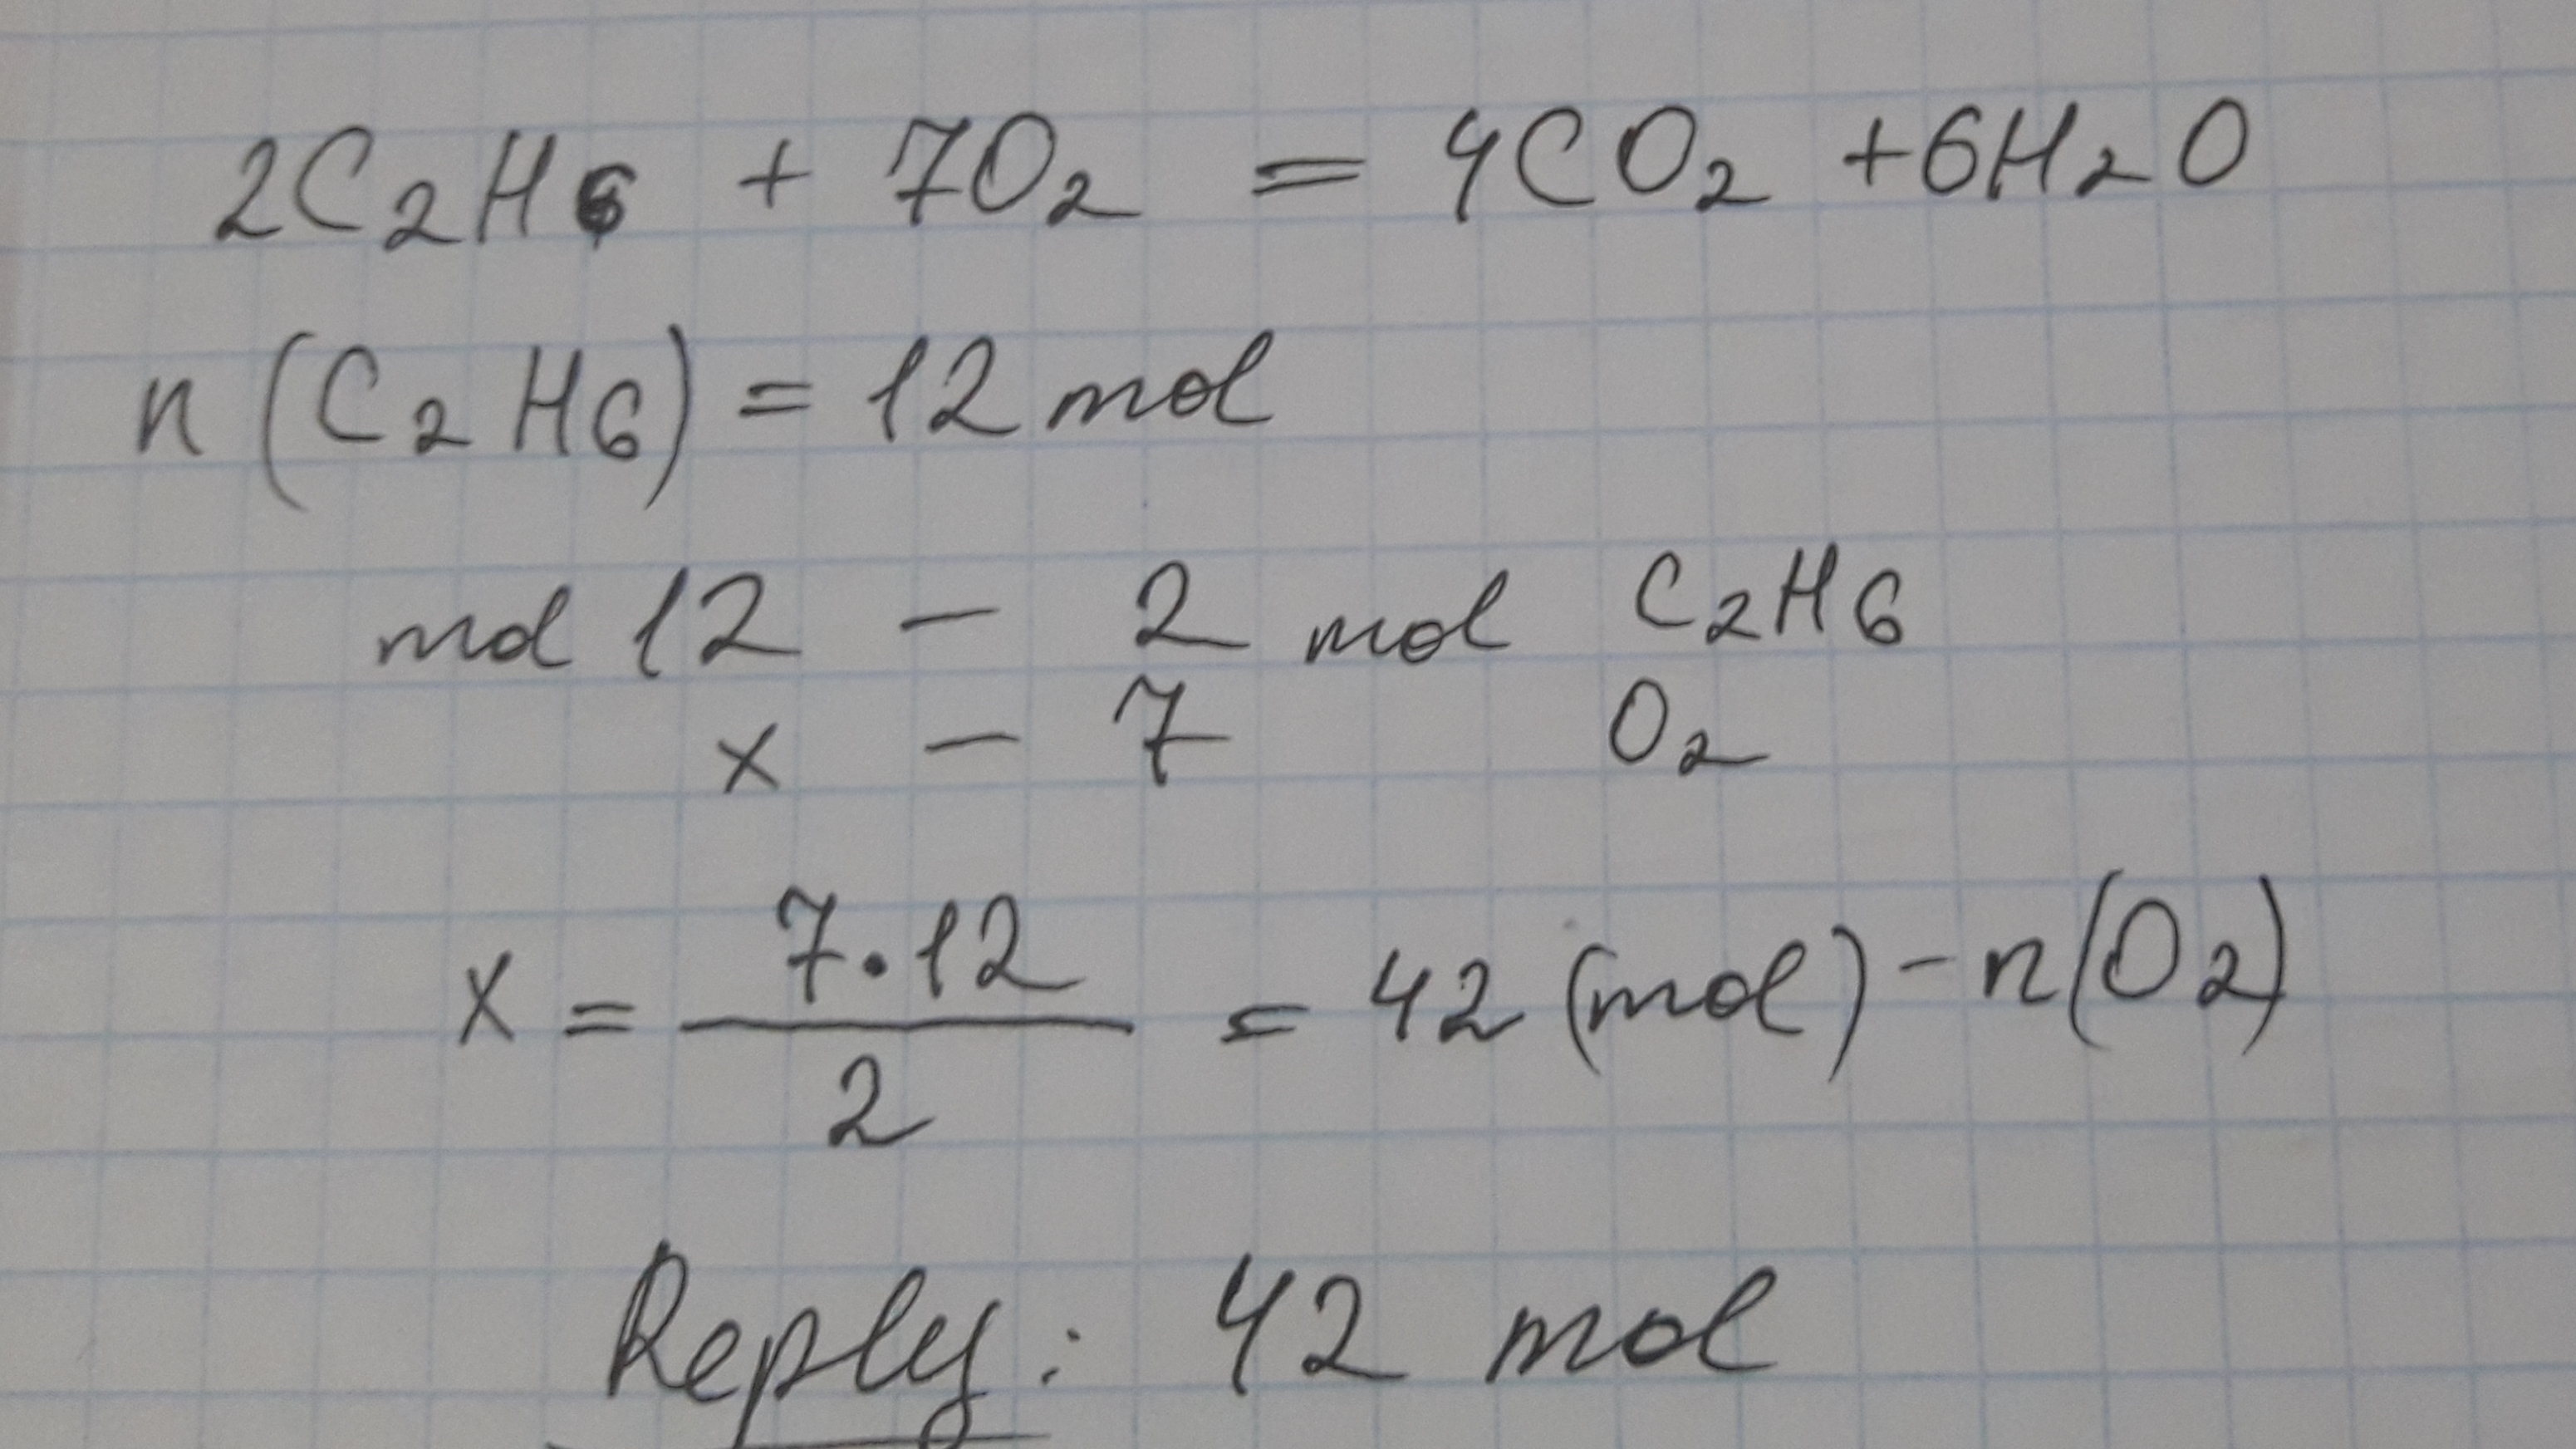 2C₂H₆ + 7O₂ = 4CO₂ + 6H₂O
n(C₂H₆) = 12 mol
mol 12 – 2 mol C₂H₆
x – 7 O₂
x = 7·12/2 = 42 (mol) – n(O₂)
Reply: 42 mol